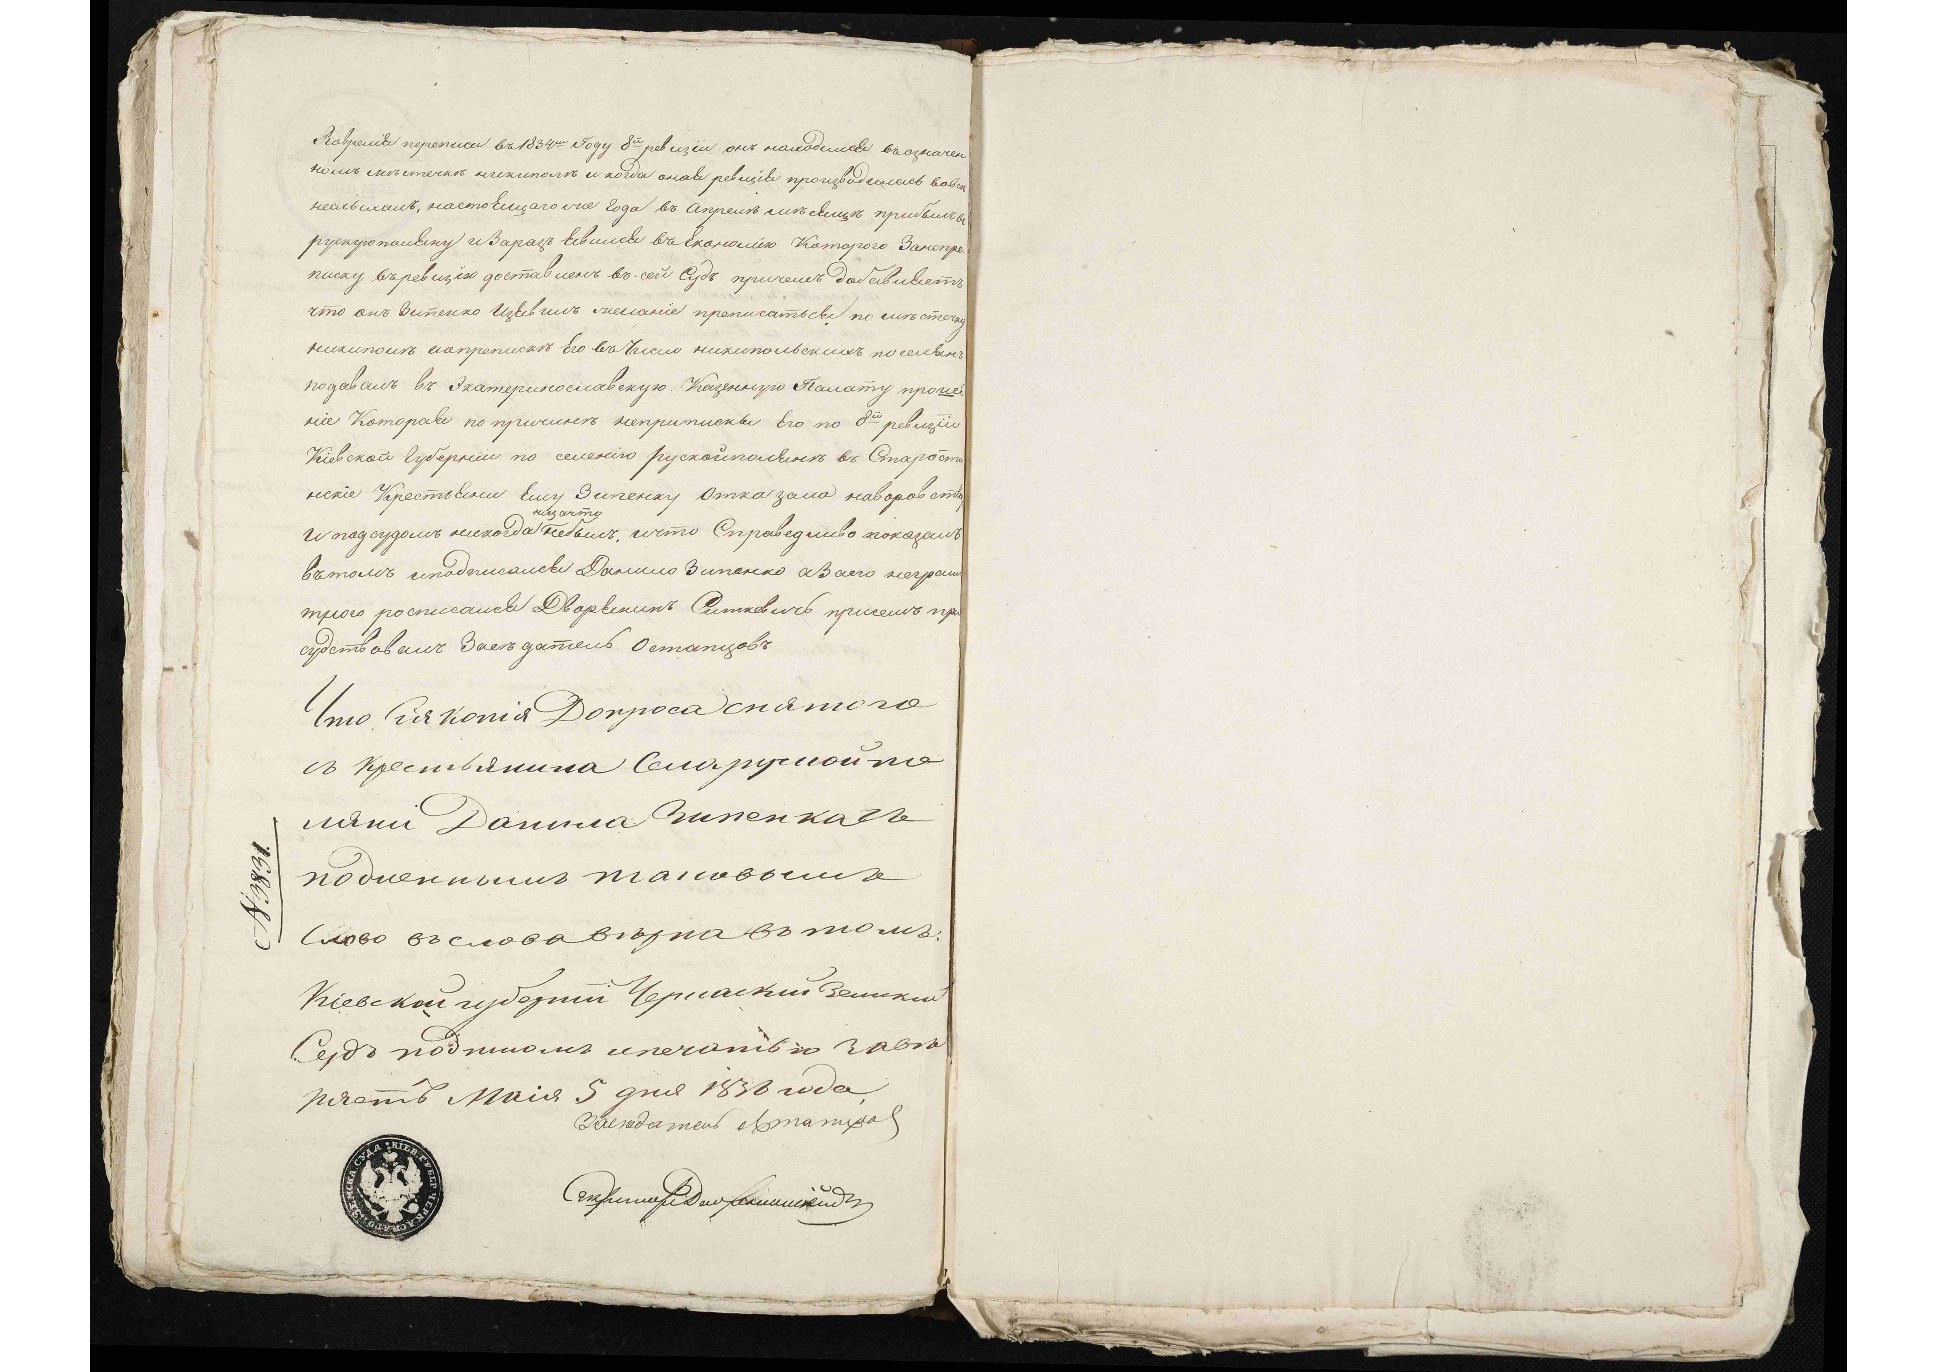 Вовремя переписи въ 1834мъ году 8й ревизіи онъ находился въ означен
номъ местечкѣ никиполѣ и когда оная ревизія производилась вовсе
незналъ, настоящаго же Года въ Апрелѣ мѣсяцѣ прибылъ въ
рускуюполяну и Заразъ явился въ Економію Которого Занепре
писку въ ревизію доставленъ въ сей Судъ причемъ добавляетъ
что онъ Зипенко Изъявилъ желаніе преписаться по мѣстечку
никиполю и опрепискѣ Его въ Число никипольскихъ поселянъ
подавалъ въ Екатеринославскую Казенную Палату проше
ніе Которая по причинѣ неприписки Его по 8й ревизіи
Кіевской Губерніи по селенію рускойполянѣ въ Старости
нскіе Крестьяни Ему Зипенку отказала наворовствѣ
и подсудомъ никогда низачто небылъ, ичто Справедливо показалъ
въ томъ иподписался Данило Зипенко аЗаего неграмо
тного росписался Дворянинъ Ситкевичъ присемъ при
судствовалъ Засѣдатель Остапцовъ
Что Сія копія Допроса снятого
съ крестьянина Села рускойпо
ляни Данила Зипенка съ
подленнымъ таковымъ
Слово въ слово вѣрна въ томъ
Кіевской губерніи Черкаскій Земскій
Судъ подписомъ ипечатью завѣ
ряетъ Маія 5 дня 1838 года
Засѣдатель Остапцов
Секритарь
N 3831.
КІЕВ: ГУБЕР: ЧЕРКАСКАГО ЗЕМСКА СУДА